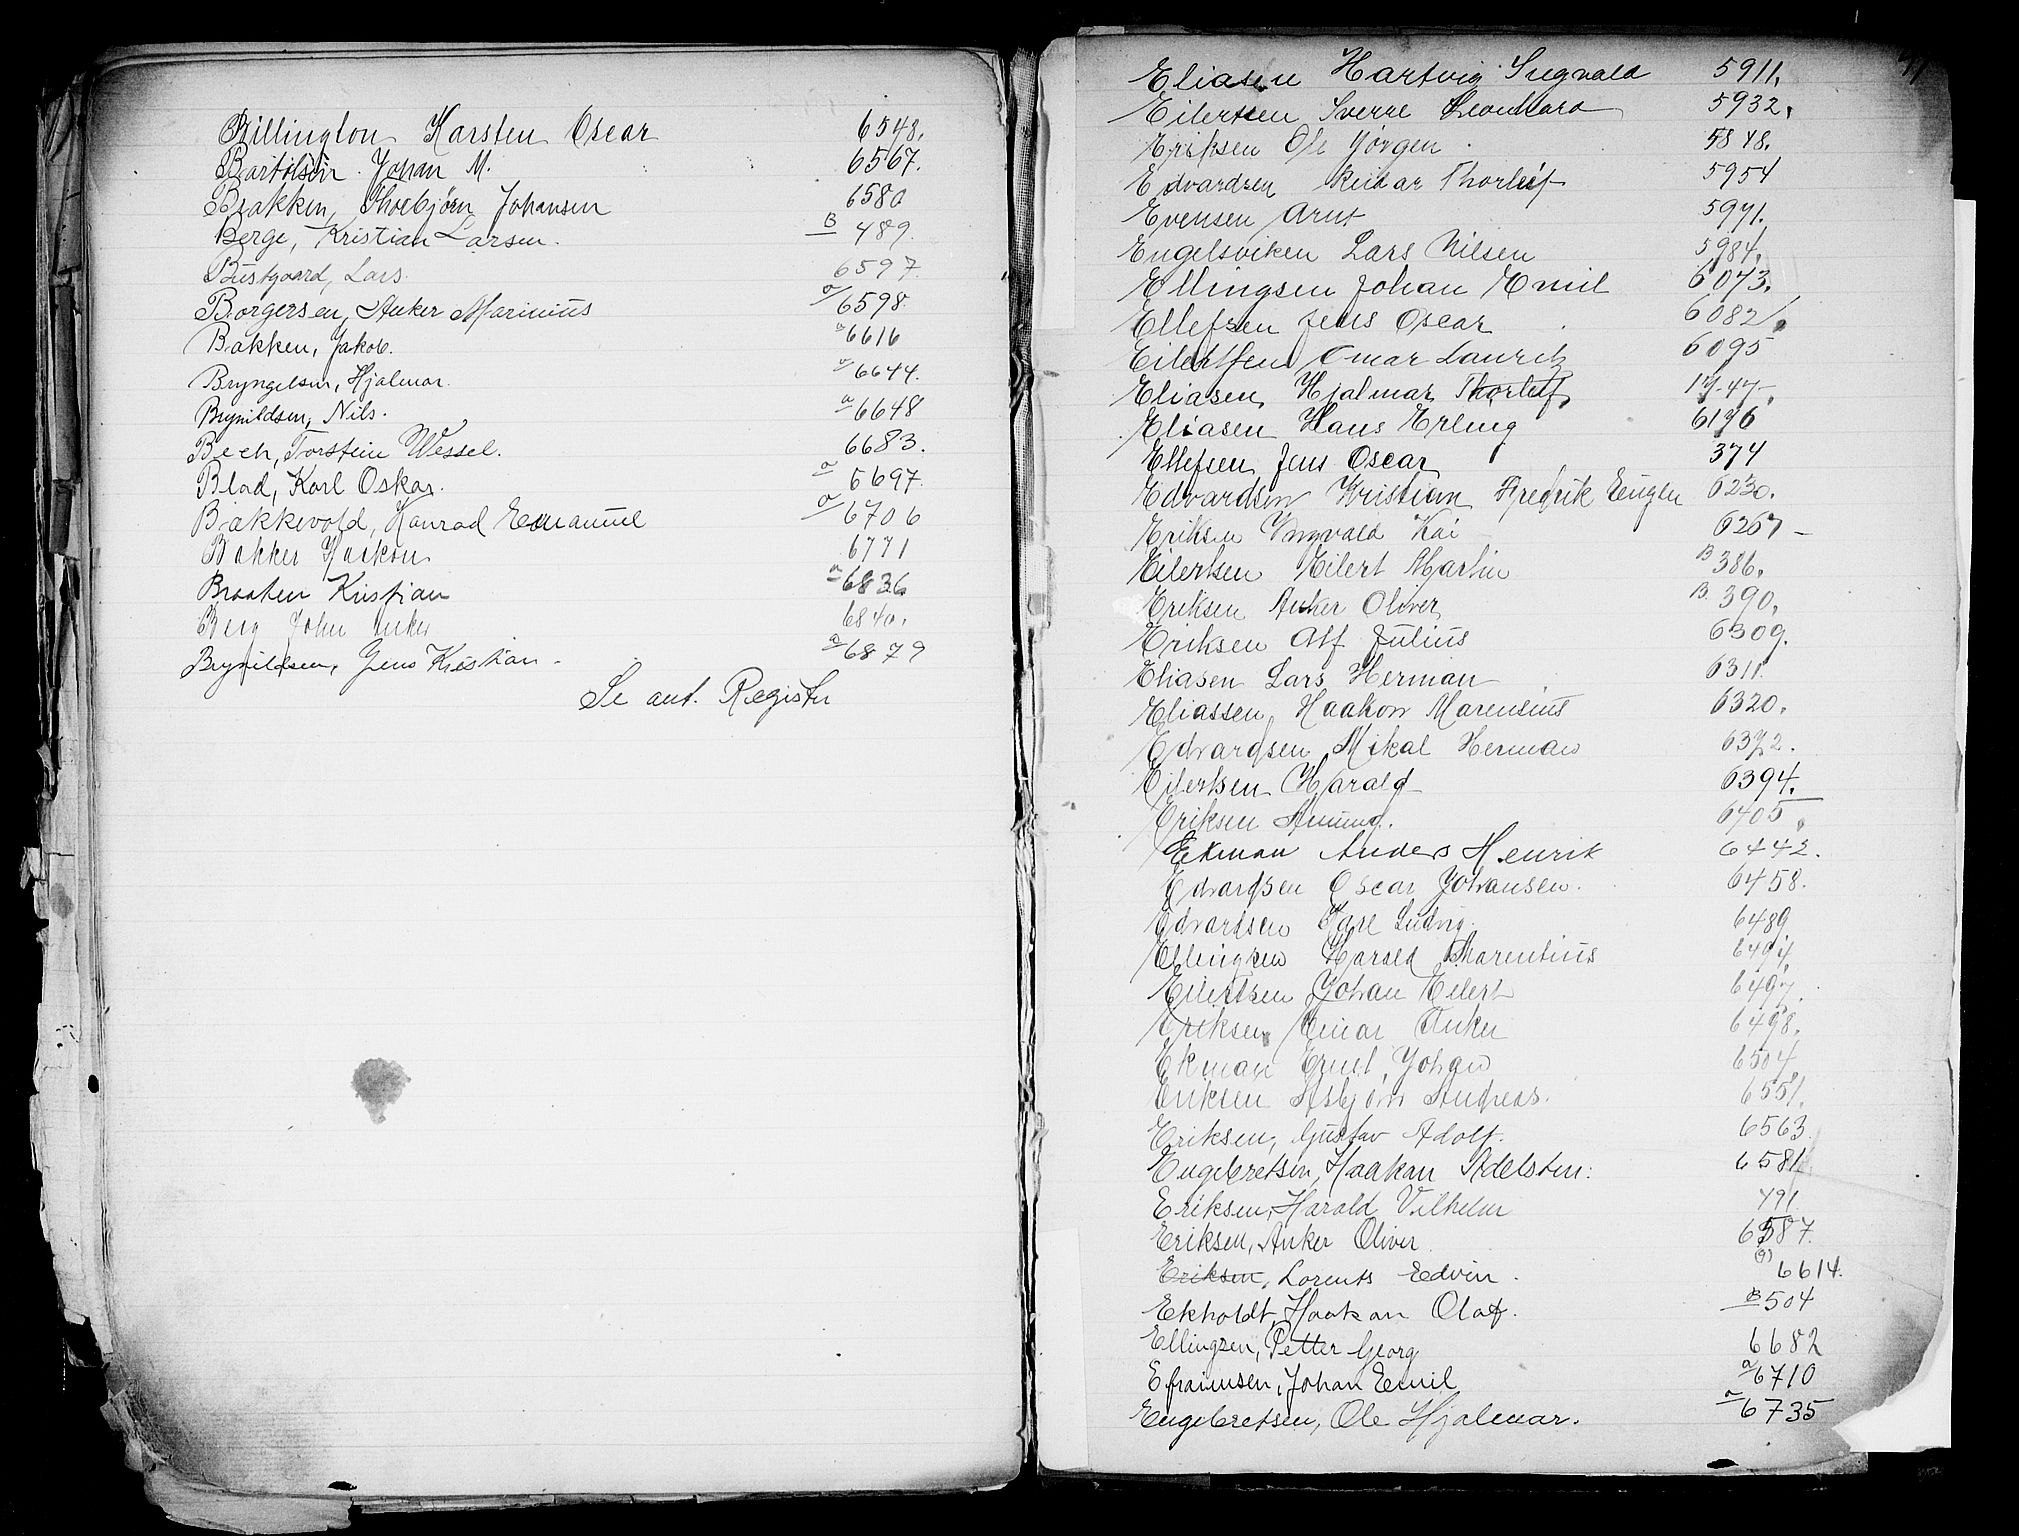 Billington Karsten Oscar 6548.
Bartolsen Johan M. 6567.
Bakken, Thorbjørn Johansen 6580
Berge, Kristian Larsen. B 489.
Bustgaard, Lars. 6597
Borgersen, Anker Marinius a/6598
Bakken, Jakob. a 6616
Bryngelsen, Hjalmar. a 6644.
Brynildsen, Nils. a 6648
Bech, Torstein Wessel. 6683.
Blad, Karl Oskar. a 6697
Bakkevold, Konrad Emanuel a/6706
Bakker Haakon 6771
Braaten Kristian a 6836
Berg John Anker 6840.
Brynildsen, Jens Kristian. a 6879
Se ant. Register
Eliasen Hartvig Sigvald 5911.
Eilertsen Sverre Leonhard 5932.
Eriksen Ole Jørgen 5848.
Edvardsen Reidar Thorleif 5954
Evensen Arnt 5971.
Engelsviken Lars Nilsen 5984.
Ellingsen Johan Emil 6073.
Ellefsen Jens Oscar 6082
Eilertsen Omar Lauritz 6095
Eliasen Hjalmar Thorleif 17-47-.
Eliasen Hans Erling 6196
Ellefsen Jens Oscar 374
Edvardsen Kristian Fredrik Eugen 6230.
Eriksen Yngvald Kai 6267 -
Eilertsen Eilert Martin B 386.
Eriksen Anker Oliver B. 390.
Eriksen Alf Julius 6309.
Eliasen Lars Herman 6311.
Eliassen Haakon Marensius 6320.
Edvardsen Mikal Herman 6372.
Eilertsen Harald 6394.
Eriksen 6405
Ekman Anders Henrik 6442.
Edvardsen Oscar Johansen. 6458.
Edvardsen Kare Ludvig. 6489
Ellingsen Harald Marentius 6494
Eilertsen Johan Eilert 6497.
Eriksen Einar Anker 6498.
Ekman Ernst Johan 6504
Eriksen Asbjørn Andreas. 6551.
Eriksen, Gustav Adolf. 6563
Engebretsen, Haakan Adelsten: 6581
Eriksen, Harald Vilhelm 491
Eriksen, Anker Oliver 6587.
Eriksen, Lorents Edvin. 6614.
Ekholdt, Haakan Olaf. B 504
Ellingsen, Petter Georg 6682
Efraimsen, Johan Emil a 6710
Engebretsen, Ole Hjalmar. a 6735